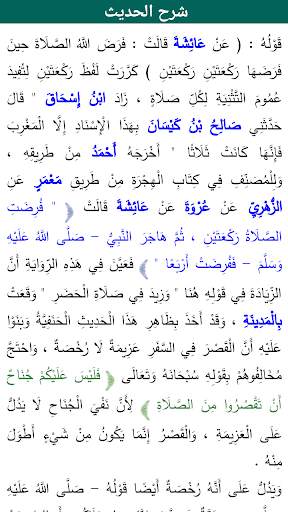 شرح الحديث
قَوْلُهُ : ( عَنْ عَائِشَةَ قَالَتْ : فَرَضَ اللهُ الصَّلَاةَ حِينَ
فَرَضَهَا رَكْعَتَيْنِ رَكْعَتَيْنِ ) كَرَّرَتْ لَفْظَ رَكْعَتَيْنِ لِتُفِيدَ
عُمُومَ التَّثْنِيَةِ لِكُلِّ صَلَاةٍ ، زَادَ ابْنُ إِسْحَاقَ " قَالَ
حَدَّثَنِي صَالِحُ بْنُ كَيْسَانَ بِهَذَا الْإِسْنَادِ إِلَّا الْمَغْرِبَ
فَإِنَّهَا كَانَتْ ثَلَاثًا " أَخْرَجَهُ أَحْمَدُ مِنْ طَرِيقِهِ ،
وَلِلْمُصَنِّفِ فِي كِتَابِ الْهِجْرَةِ مِنْ طَرِيقِ مَعْمَرٍ عَنِ
الزُّهْرِيِّ عَنْ عُرْوَةَ عَنْ عَائِشَةَ قَالَتْ ﴿ " فُرِضَتِ
الصَّلَاةُ رَكْعَتَيْنِ ، ثُمَّ هَاجَرَ النَّبِيُّ - صَلَّى اللهُ عَلَيْهِ
وَسَلَّمَ - فَفُرِضَتْ أَرْبَعًا " ﴾ فَعَيَّنَ فِي هَذِهِ الرِّوَايَةِ أَنَّ
الزِّيَادَةَ فِي قَوْلِهِ هُنَا " وَزِيدَ فِي صَلَاةِ الْحَضَرِ " وَقَعَتْ
بِالْمَدِينَةِ ، وَقَدْ أَخَذَ بِظَاهِرِ هَذَا الْحَدِيثِ الْحَنَفِيَّةُ وَبَنَوْا
عَلَيْهِ أَنَّ الْقَصْرَ فِي السَّفَرِ عَزِيمَةٌ لَا رُخْصَةٌ ، وَاحْتَجَّ
مُخَالِفُوهُمْ بِقَوْلِهِ سُبْحَانَهُ وَتَعَالَى ﴿ فَلَيْسَ عَلَيْكُمْ جُنَاحٌ
أَنْ تَقْصُرُوا مِنَ الصَّلَاةِ ﴾ لِأَنَّ نَفْيَ الْجُنَاحِ لَا يَدُلُّ
عَلَى الْعَزِيمَةِ ، وَالْقَصْرُ إِنَّمَا يَكُونُ مِنْ شَيْءٍ أَطْوَلَ
مِنْهُ .
وَيَدُلُّ عَلَى أَنَّهُ رُخْصَةٌ أَيْضًا قَوْلُهُ - صَلَّى اللهُ عَلَيْهِ